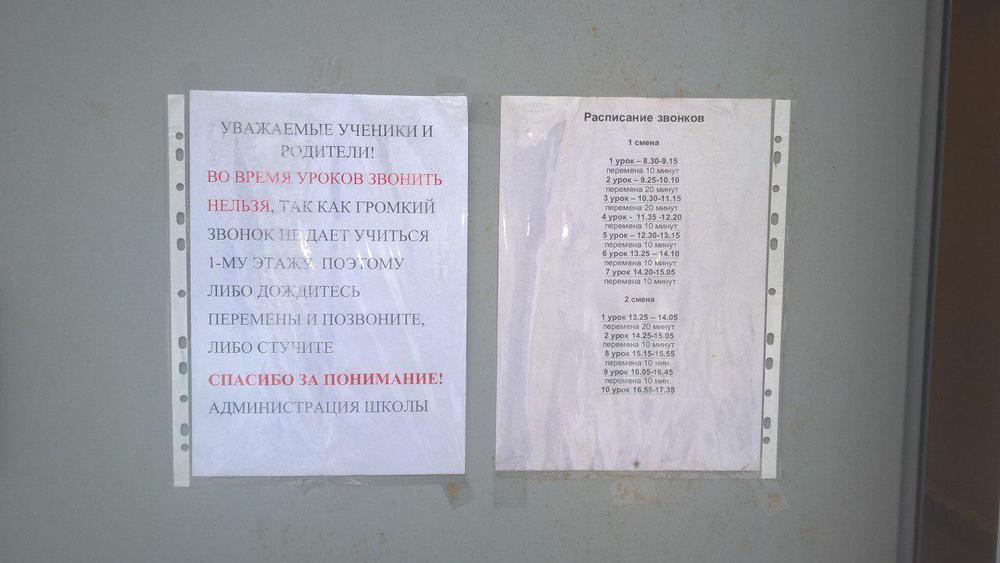 УВАЖАЕМЫЕ УЧЕНИКИ И
РОДИТЕЛИ!
ВО ВРЕМЯ УРОКОВ ЗВОНИТЬ
НЕЛЬЗЯ, ТАК КАК ГРОМКИЙ
ЗВОНОК НЕ ДАЕТ УЧИТЬСЯ
1-МУ ЭТАЖУ. ПОЭТОМУ
ЛИБО ДОЖДИТЕСЬ
ПЕРЕМЕНЫ И ПОЗВОНИТЕ,
ЛИБО СТУЧИТЕ
СПАСИБО ЗА ПОНИМАНИЕ!
АДМИНИСТРАЦИЯ ШКОЛЫ
Расписание звонков
1 смена
1 урок – 8.30-9.15
перемена 10 минут
2 урок – 9.25-10.10
перемена 20 минут
3 урок – 10.30-11.15
перемена 20 минут
4 урок - 11.35 -12.20
перемена 10 минут
5 урок – 12.30-13.15
перемена 10 минут
6 урок 13.25 – 14.10
перемена 10 минут
7 урок 14.20-15.05
перемена 10 минут
2 смена
1 урок 13.25 – 14.05
перемена 20 минут
2 урок 14.25-15.05
перемена 10 минут
8 урок 15.15-15.55
перемена 10 мин.
9 урок 16.05-16.45
перемена 10 мин.
10 урок 16.55-17.35